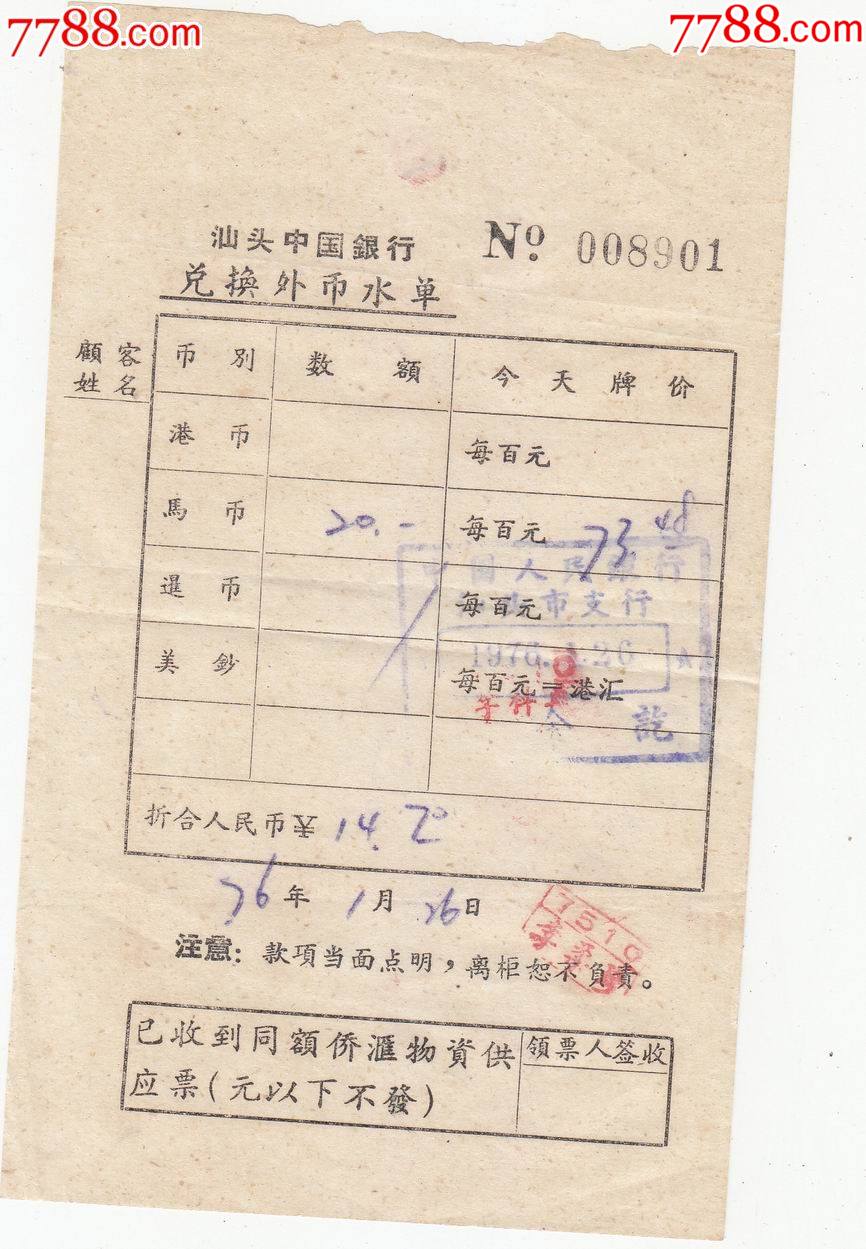 7788.com
7788.com
汕头中国銀行
Nº 008901
兑換外币水单
顧客
姓名
币別 数額 今天牌价
港币 每百元
馬币 20.- 每百元 73.48
暹币 每百元
美鈔 每百元=港汇
中国人民銀行
市支行
1976.1.26
訖
折合人民币 14.70
76年 1月 26日
7510
注意：款項当面点明，离柜恕不負責。
已收到同額侨滙物資供
应票(元以下不發)
領票人签收